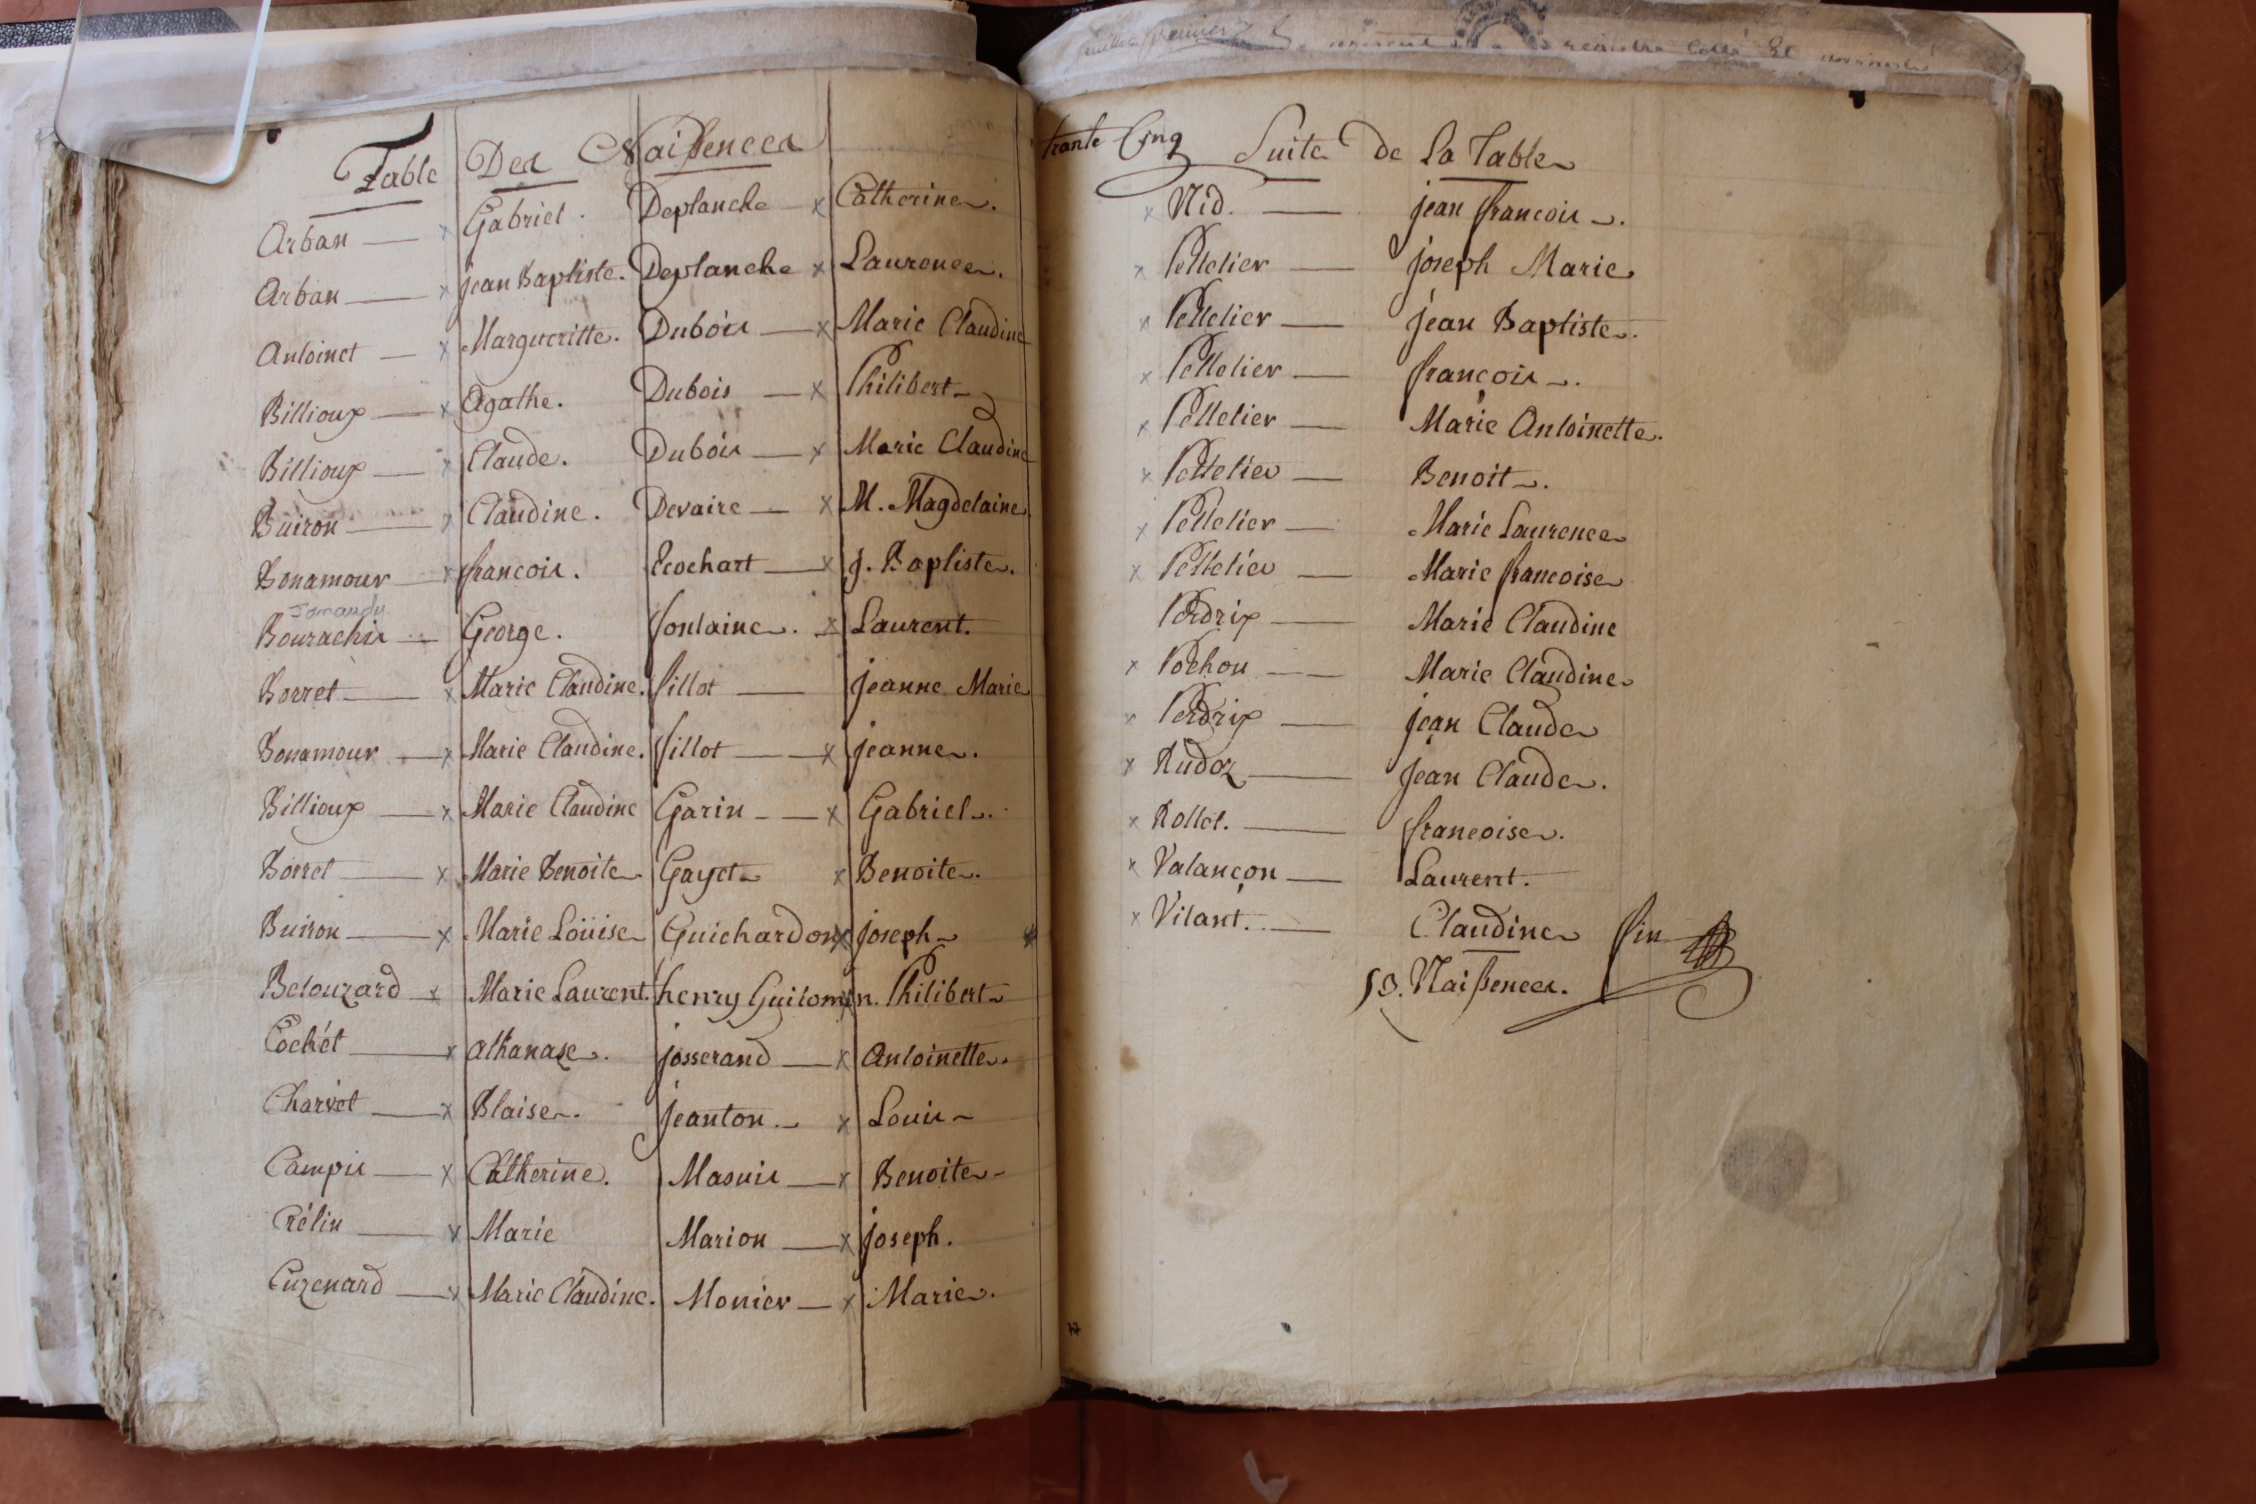 Table Des Naissences
Arban — Gabriel. Deplanche — Catherine.
Arban — jean Baptiste. Deplanche Laurence.
Antoinet — Margueritte. Dubois — Marie Claudine
Billioux — Agathe. Dubois — Philibert
Billioux — Claude. Dubois — Marie Claudine
Buiron — Claudine. Devaire — M. Magdelaine
Bonamour — francois. Ecochart — J. Baptiste.
Jomandy
Bourachis — George. fontaine. — Laurent.
Borret — Marie Claudine. fillot — jeanne Marie
Bonamour — Marie Claudine. fillot — jeanne.
Billioux — Marie Claudine Garin — Gabriel.
Borret — Marie Benoite Gayet Benoite.
Buiron — Marie Loüise Guichardon joseph
Belouzard Marie Laurent. henry Guilomin. Philibert
Cochét — athanase. josserand — Antoinette.
Charvet — Blaise. jeanton. Louis
Campis — Catherine. Masuis — Benoite
Crélin — Marie Marion — joseph.
Cuzenard — Marie Claudine. Monier — Marie.
trante Cinq Suite de La Table
Nid. — jean francois.
Pelletier — joseph Marie
Pelletier — jean Baptiste.
Pelletier — françois.
Pelletier — Marie Antoinette.
Pelletier — Benoit.
Pelletier — Marie Laurence
Pelletier — Marie francoise
Perdrix — Marie Claudine
Pochon — Marie Claudine
Perdrix — jean Claude
Rudoz — jean Claude.
Rollet. — francoise.
Valançon — Laurent.
Vilant. — Claudine fin
53. Naissences.